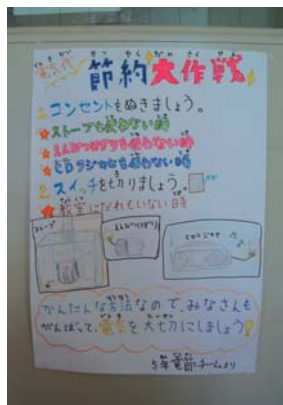 電気代
節約大作戦
1.コンセントをぬきましょう。
★ストーブを使わない時
★えんぴつけずりを使わない時
★CDラジカセを使わない時
2.スイッチを切りましょう。
★教室にだれもいない時
ストーブ
えんぴつけずり
CDラジカセ
かんたんな方法なので、みなさんも
がんばって、電気を大切にしましょう!
5年電節チームより